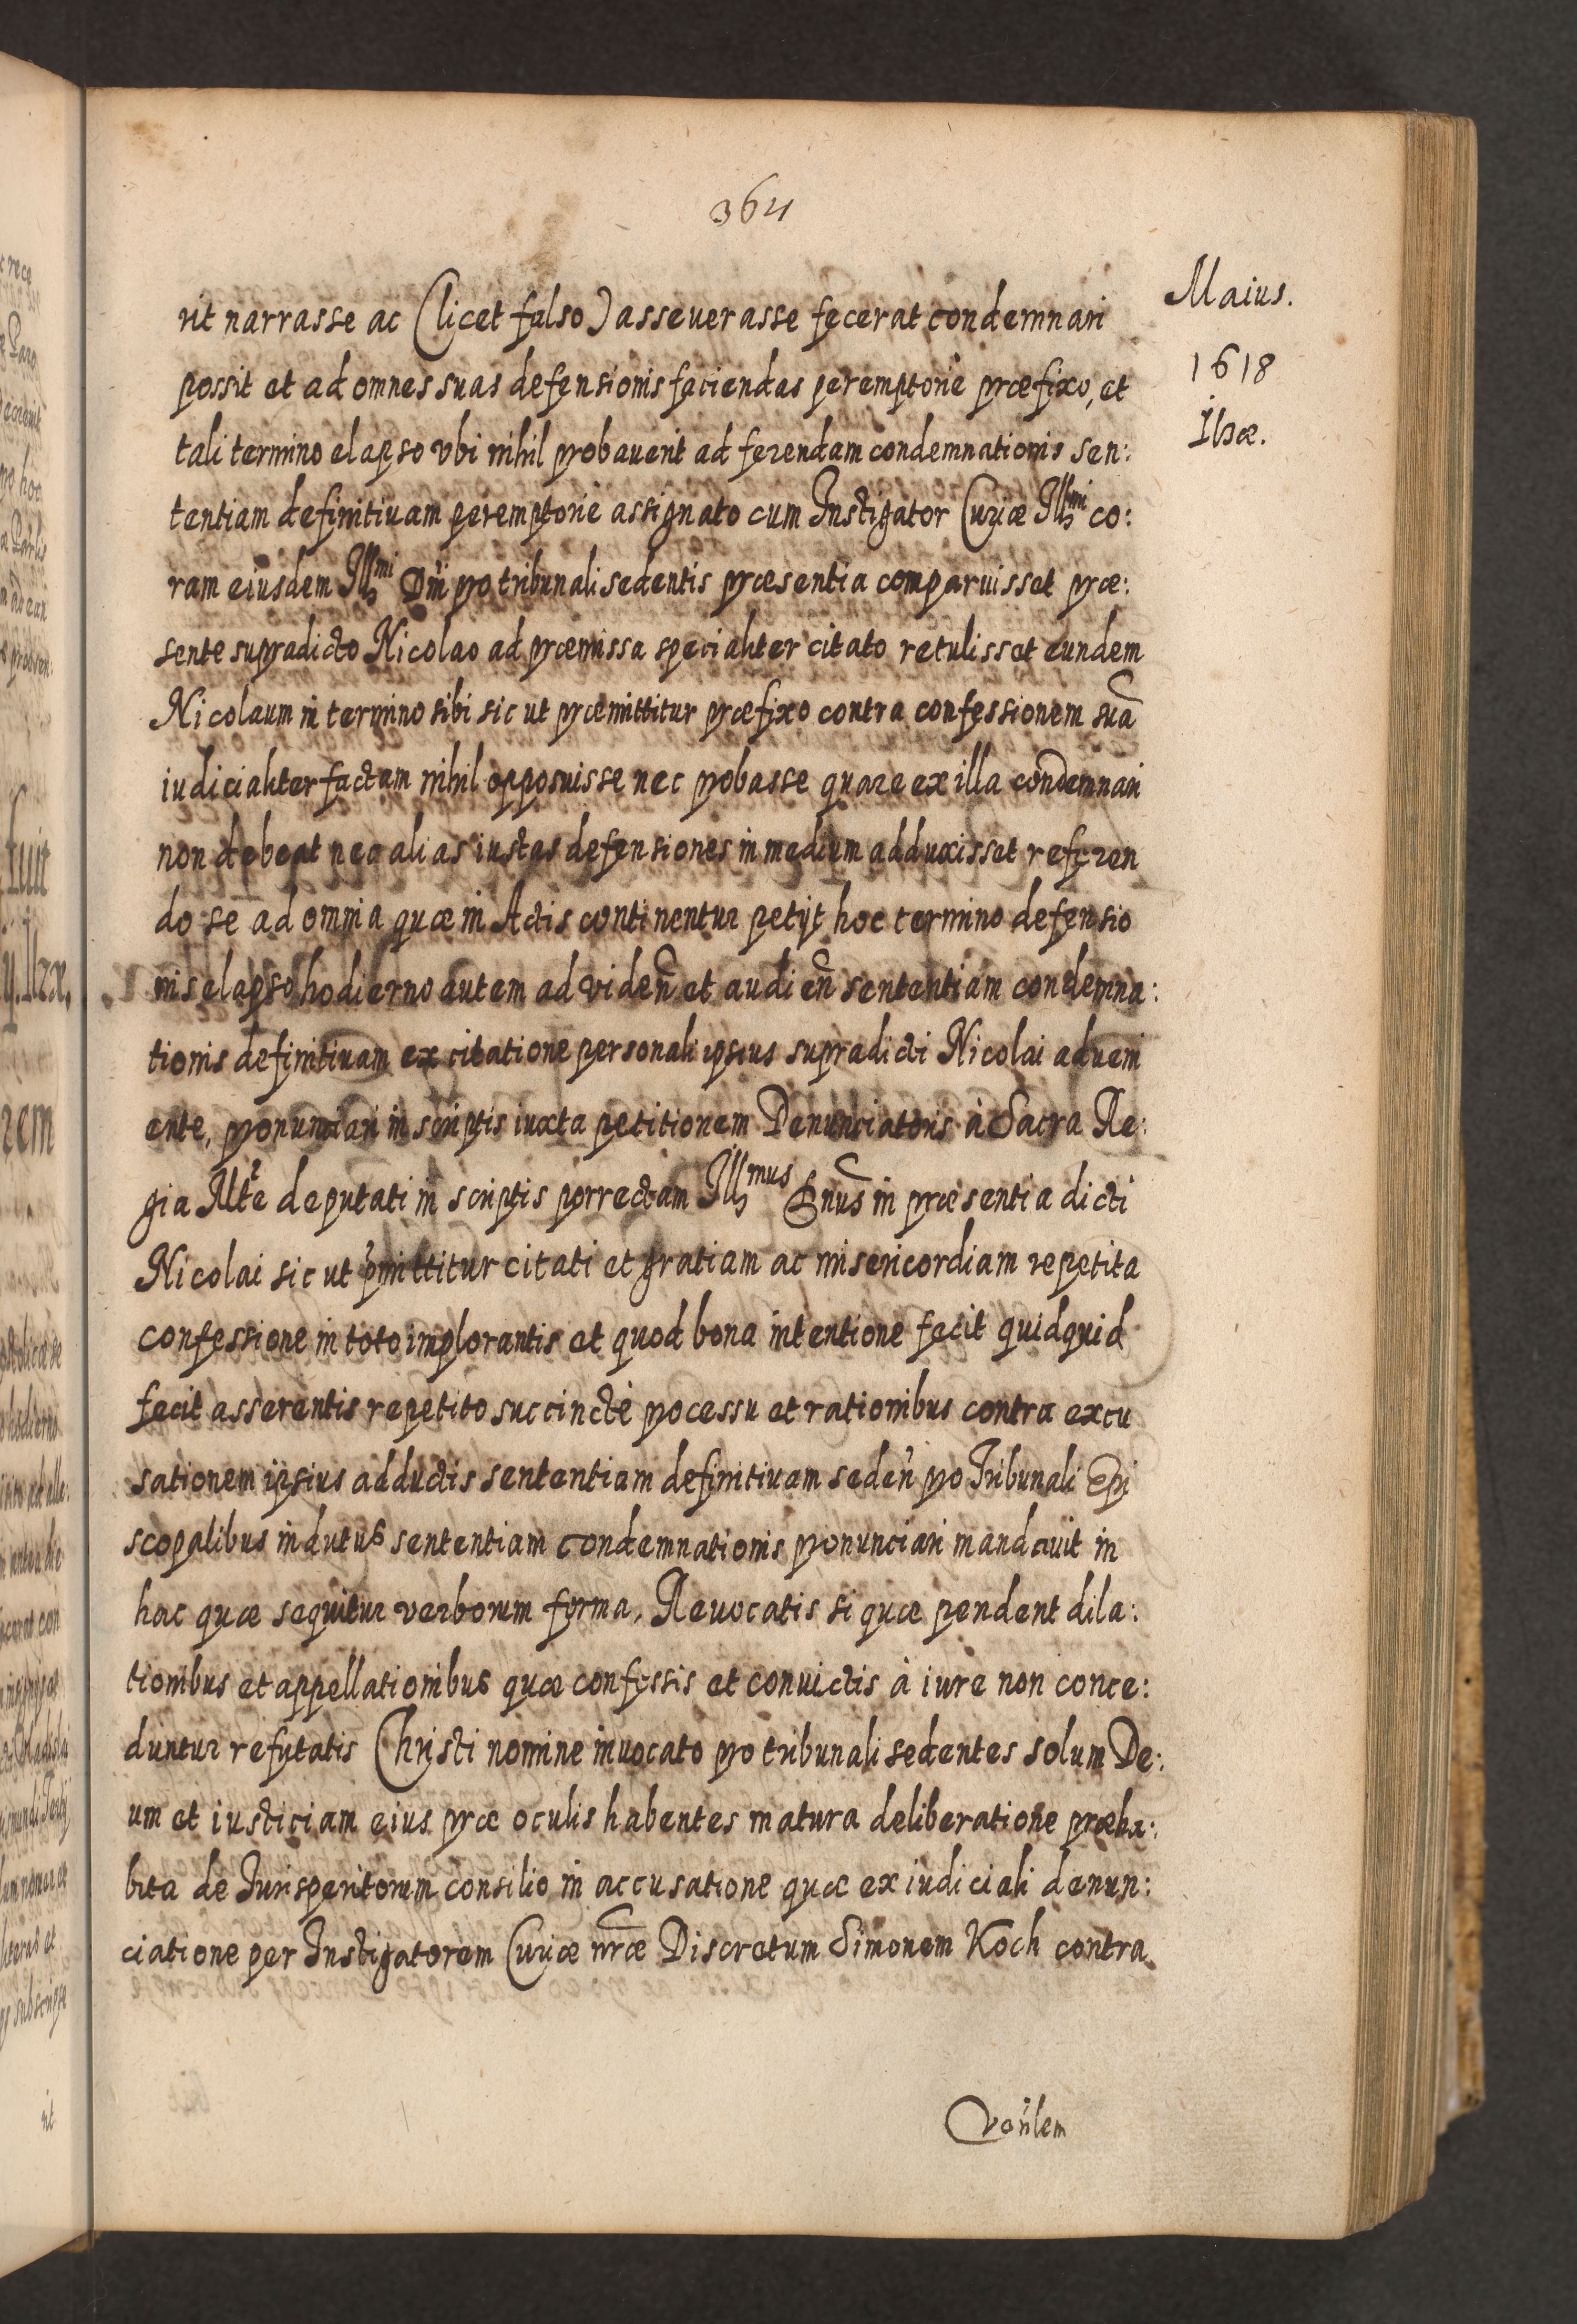 364
Maius.
1618
Ilzæ.
rit narrasse ac (licet falso) asseuerasse fecerat condemnari
possit et ad omnes suas defensionis faciendas peremptoriè præfixo, et
tali termino elapso vbi nihil probauerit ad ferendam condemnationis sen:
tentiam definitiuam peremptoriè assignato cum Instigator Curiæ Illmi co:
ram eiusdem Illmi Dni pro tribunali sedentis præsentia comparuisset præ:
sente supradicto Nicolao ad præmissa specialiter citato retulisset eundem
Nicolaum in termino sibi sic ut præmittitur præfixo contra confessionem suã
iudicialiter factam nihil opposuisse nec probasse quare ex illa condemnari
non debeat nec alias iustas defensiones in medium adduxisset referen
do se ad omnia quæ in Actis continentur petijt hoc termino defensio
nis elapso hodierno autem ad viden̄ et audien̄ sententiam condemna:
tionis definitiuam ex citatione personali ipsius supradicti Nicolai adueni
ente, pronunciari in scriptis iuxta petitionem Denunciatoris à Sacra Re:
gia Mtte deputati in scriptis porrectam Illmus Dnus in præsentia dicti
Nicolai sic ut pmittitur citati et gratiam ac misericordiam repetita
confessione in toto implorantis et quod bona intentione fecit quidquid
fecit asserentis repetito succinctè processu et rationibus contra excu
sationem ipsius adductis sententiam definitiuam seden̄ pro Tribunali Epi
scopalibus indutus sententiam condemnationis pronunciari mandauit in
hac quæ sequitur verborum forma, Reuocatis si quæ pendent dila:
tionibus et appellationibus quæ confessis et conuictis à iure non conce:
duntur refutatis Christi nomine inuocato pro tribunali sedentes solum De:
um et iusticiam eius præ oculis habentes matura deliberatione præha:
bita de Iurisperitorum consilio in accusatione quæ ex iudiciali denun:
ciatione per Instigatorem Curiæ nræ Discretum Simonem Koch contra